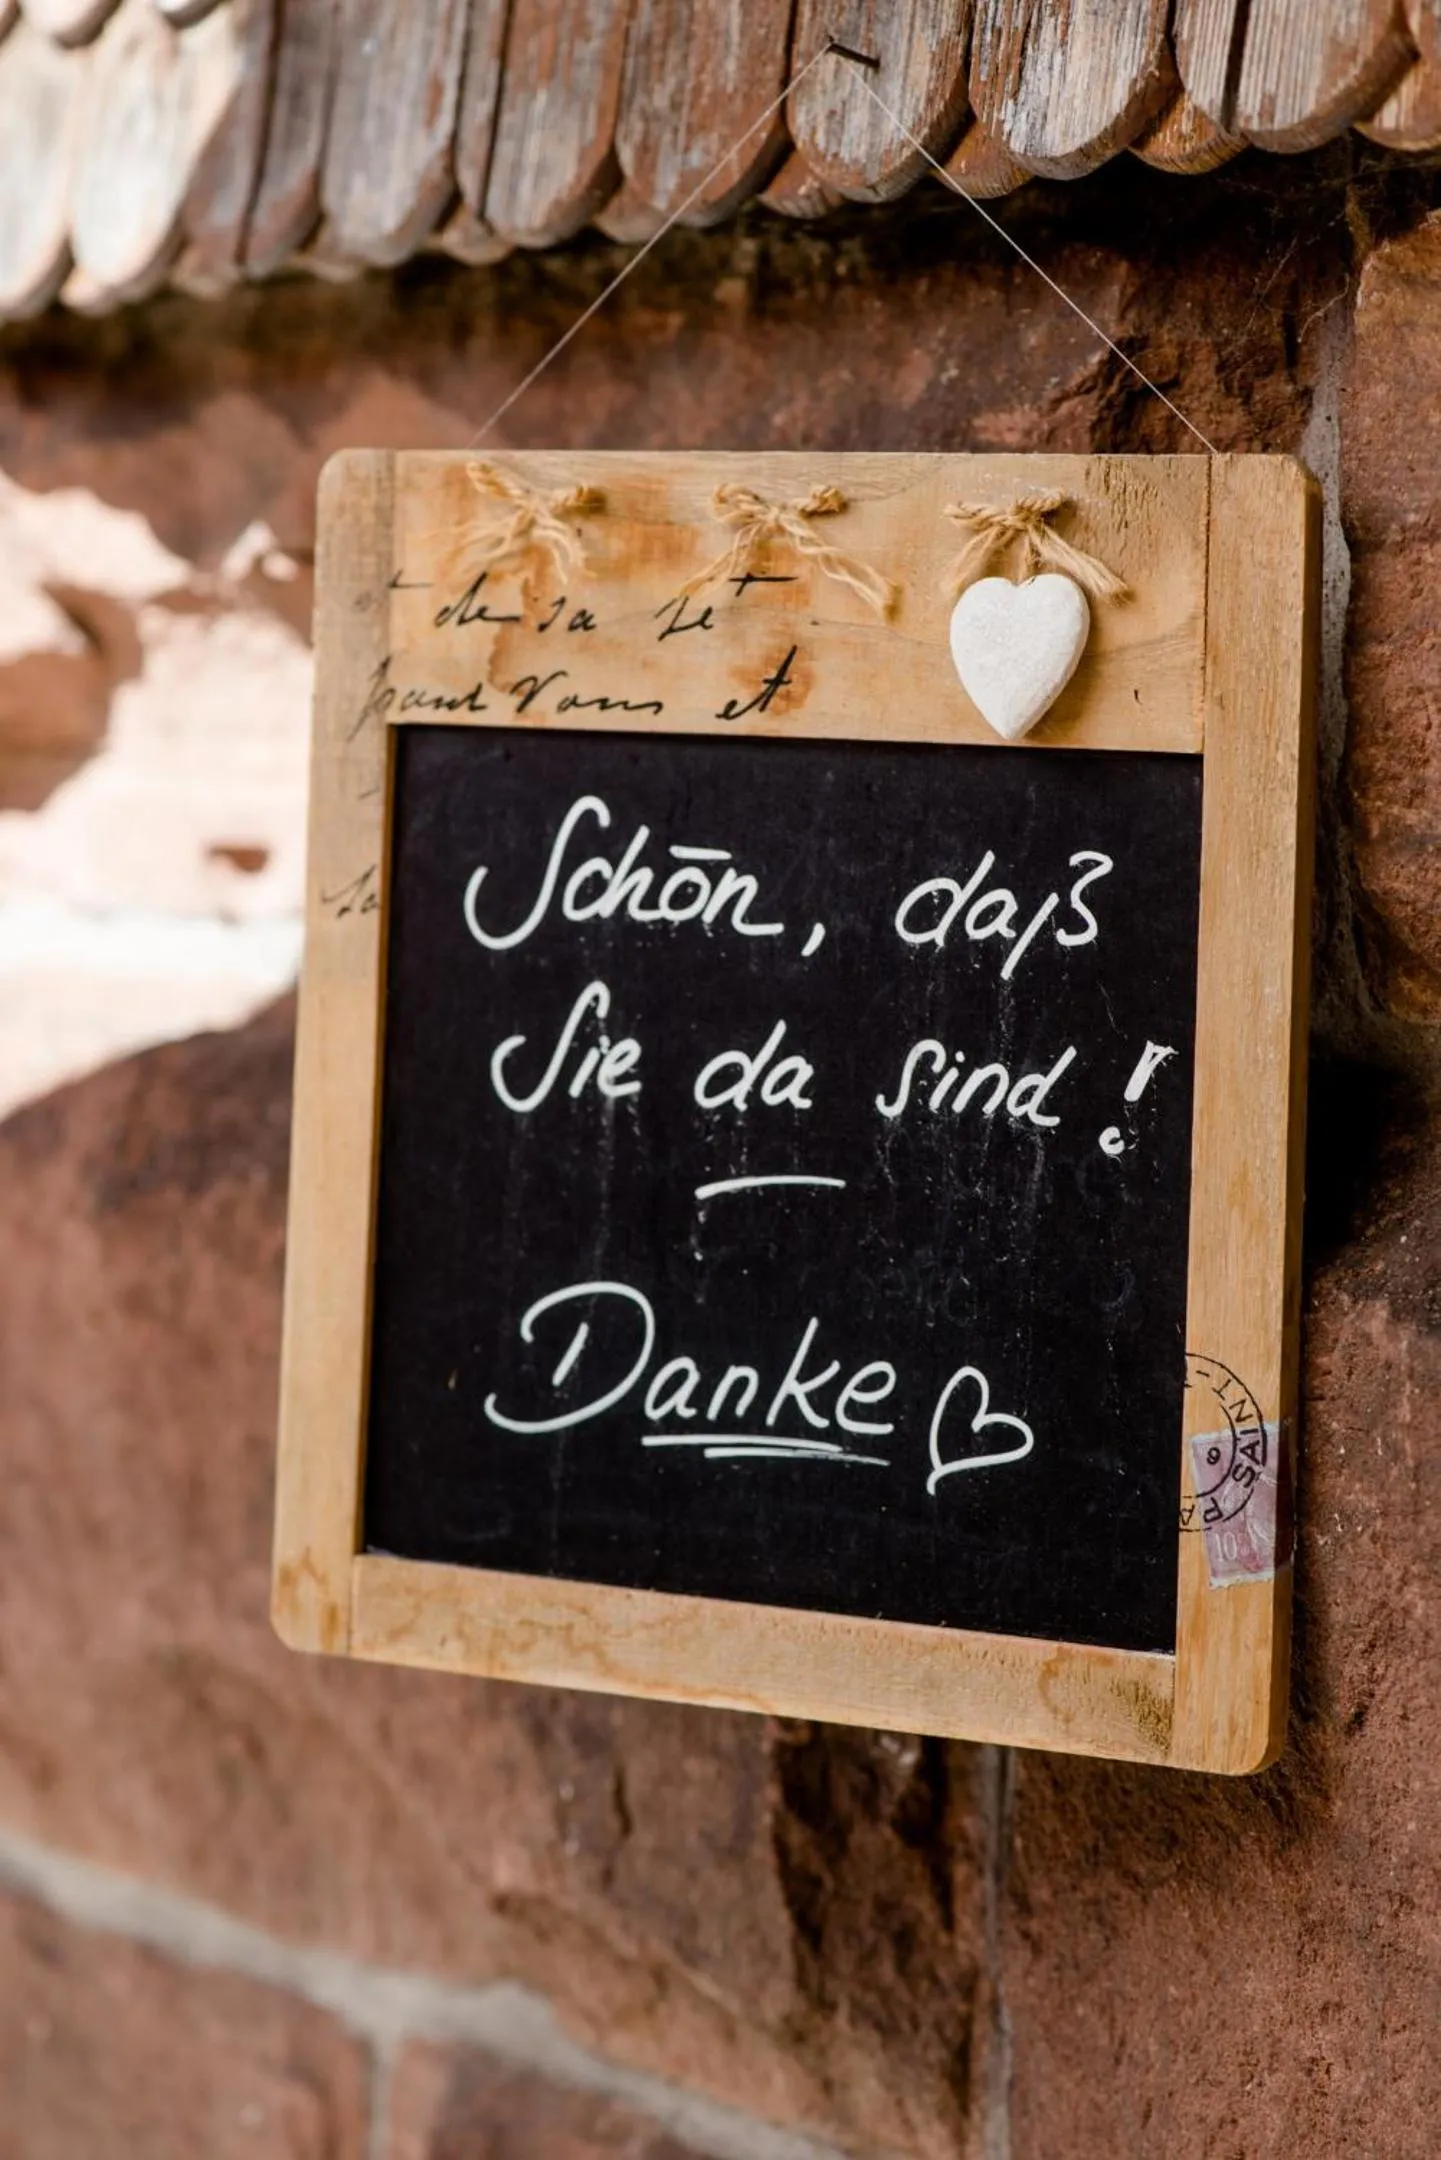 de sa
vous et
Schön, daß
Sie da sind!
Danke
SAINT-
10